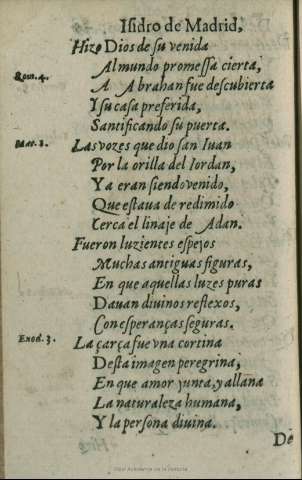 Isidro de Madrid,
Hizo Dios de su venida
Al mundo promeſſa cierta,
Rom. 4.
A Abrahan fue deſcubierta
Y ſu caſa preferida,
Santificando ſu puerta.
Mat. 3.
Las vozes que dio ſan Iuan
Por la orilla del Iordan,
Ya eran ſiendo venido,
Que eſtaua de redimido
Cerca el linaje de Adan.
Fueron luzientes eſpejos
Muchas antiguas figuras,
En que aquellas luzes puras
Dauan diuinos reflexos,
Con eſperanças ſeguras.
Exod. 3.
La çarça fue vna cortina
Deſta imagen peregrina,
En que amor junta, y allana
La naturaleza humana,
Y la perſona diuina.
De
Real Academia de la Historia